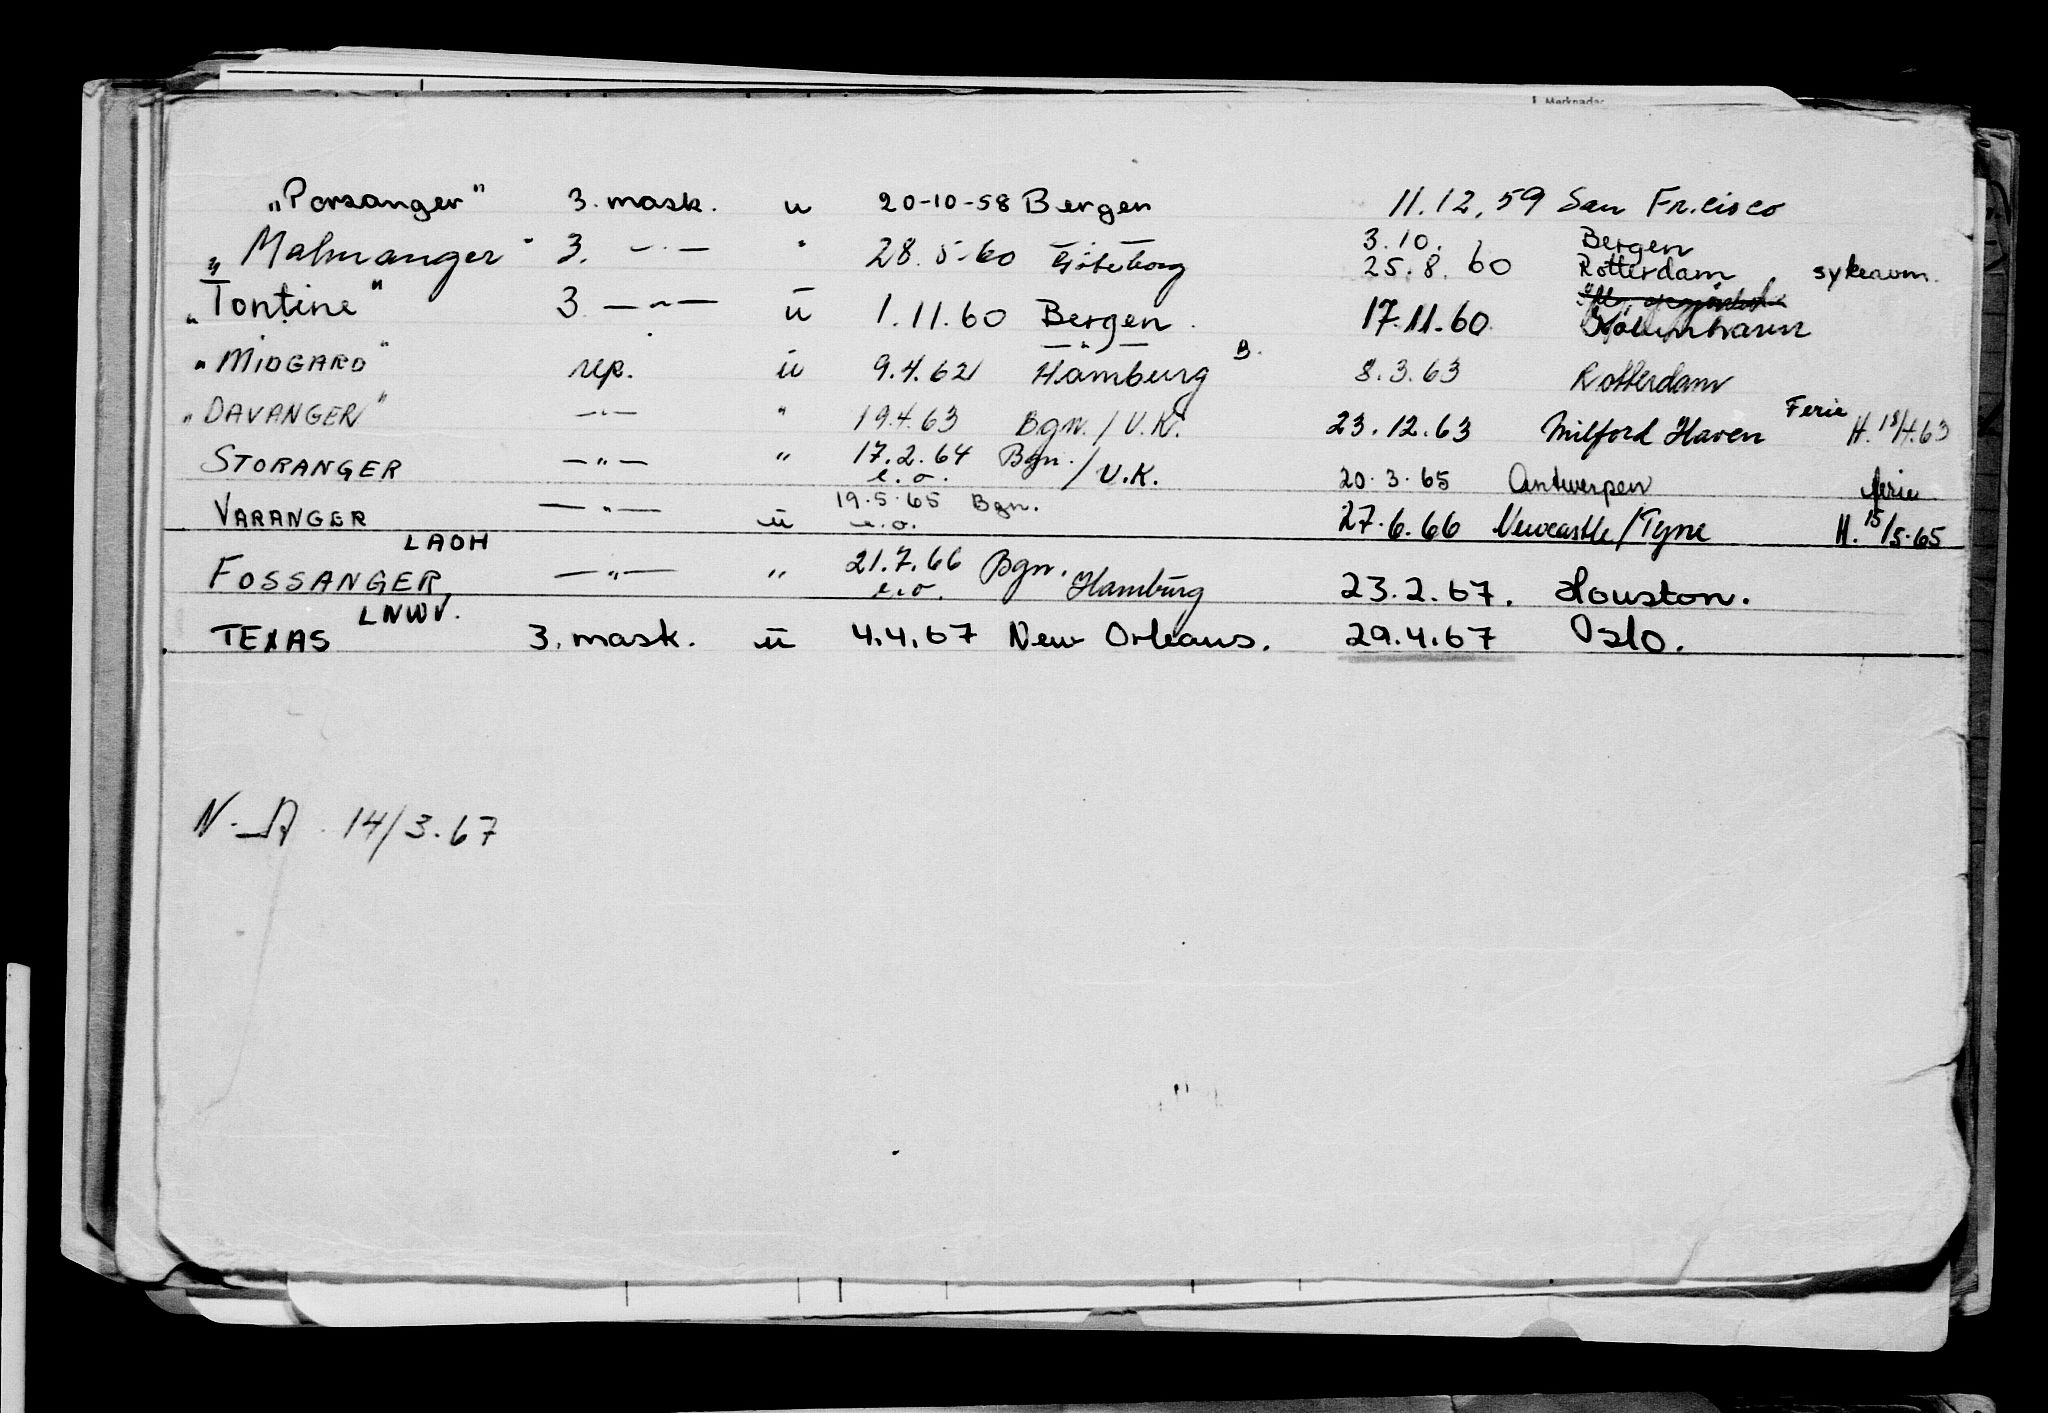 Merknader
„Porsanger" 3. mask. u 20-10-58 Bergen 11.12.59 San Fr.cisco
„Malmanger" 3. —"— " 28.5.60 Göteborg 3.10. Bergen
25.8.60 Rotterdam, sykerom.
„Tontine" 3 —"— u 1.11.60 Bergen. 17.11.60
—"—
"MIDGARD" rep. u 9.4.62 Hamburg B. 8.3.63 Rotterdam
„DAVANGER" —"— " 19.4.63 Bgn./U.K. 23.12.63 Milford Haven Ferie H. 18/4.63
STORANGER —"— " 17.2.64 Bgn./U.K. 20.3.65 Antwerpen ferie
e.o.
VARANGER —"— u 19.5.65 Bgn. 27.6.66 Newcastle/Tyne H. 15/5.65
e.o.
LAOH
FOSSANGER —"— " 21.7.66 Bgn. Hamburg 23.2.67. Houston.
e.o.
LNWV.
TEXAS 3. mask. u 4.4.67 New Orleans. 29.4.67 Oslo.
N.A. 14/3.67